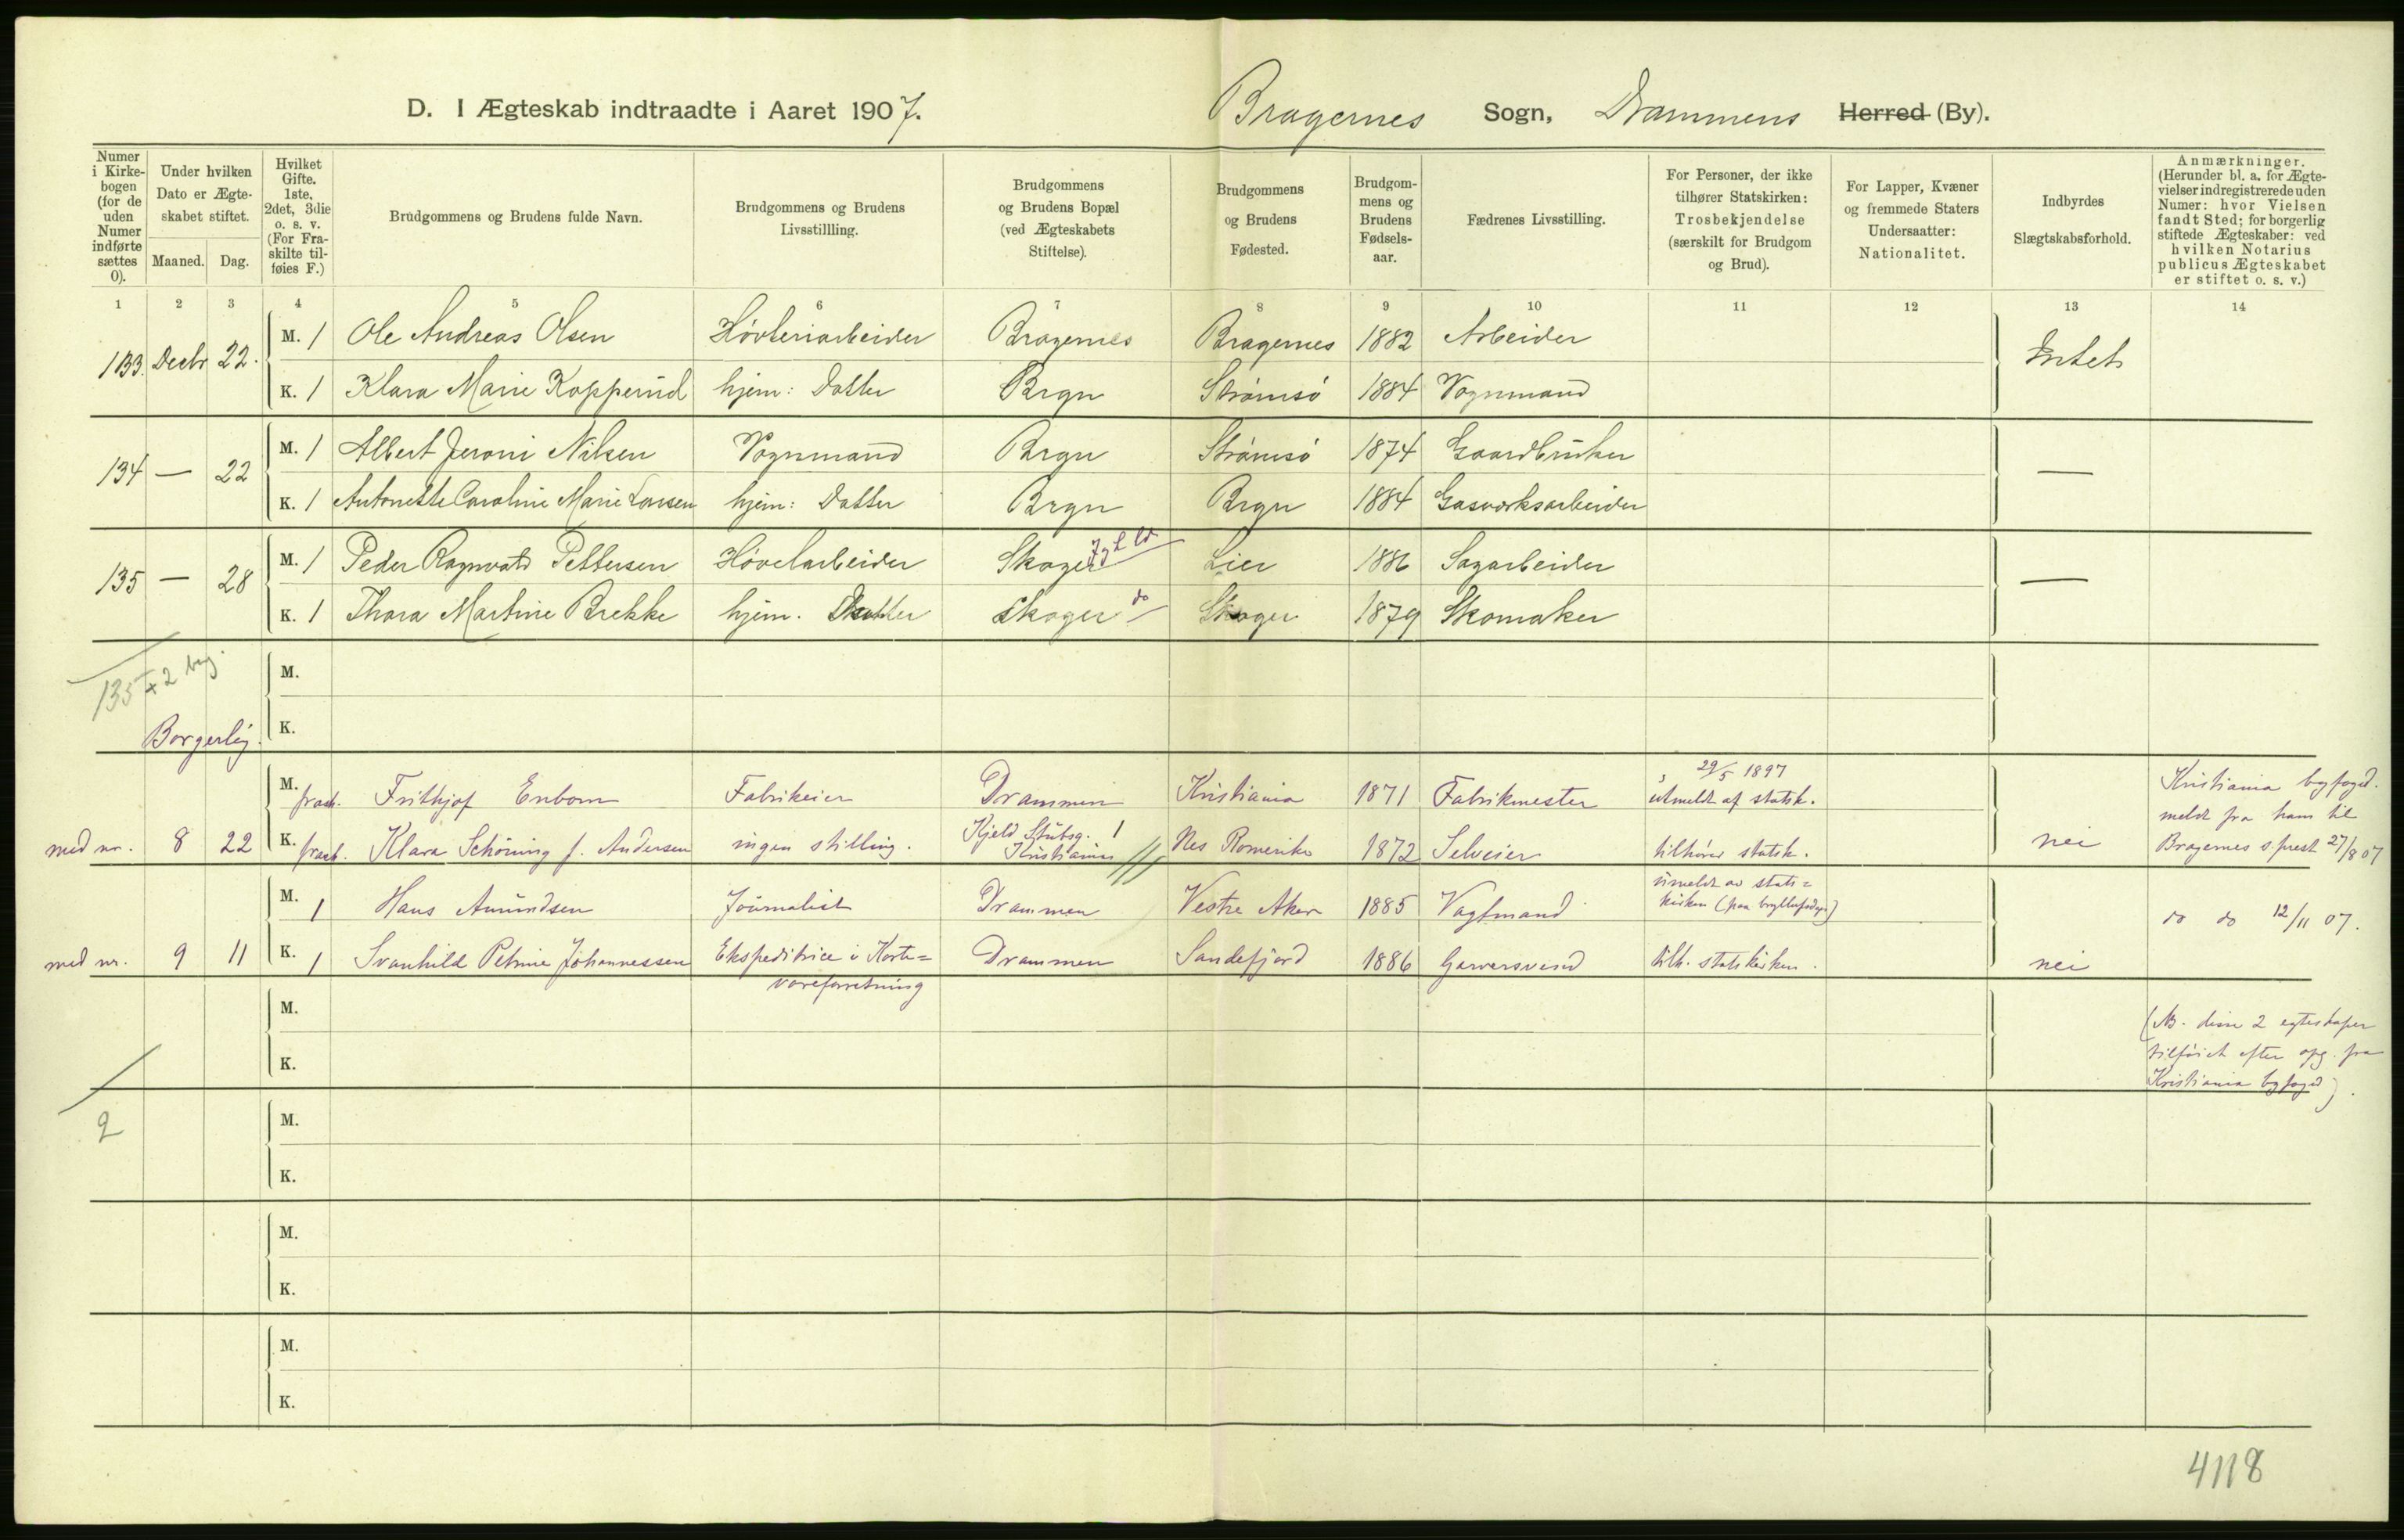 D. I Ægteskab indtraadte i Aaret 1907.
Bragernes Sogn, Drammens Herred (By).
Numer i Kirkebogen (for de uden Numer indførte sættes 0).
Under hvilken Dato er Ægteskabet stiftet.
Maaned. Dag.
Hvilket Gifte. 1ste, 2det, 3die o. s. v. (For Fraskilte tilføies F.)
Brudgommens og Brudens fulde Navn.
Brudgommens og Brudens Livsstillling.
Brudgommens og Brudens Bopæl (ved Ægteskabets Stiftelse).
Brudgommens og Brudens Fødested.
Brudgommens og Brudens Fødselsaar.
Fædrenes Livsstilling.
For Personer, der ikke tilhører Statskirken: Trosbekjendelse (særskilt for Brudgom og Brud).
For Lapper, Kvæner og fremmede Staters Undersaatter: Nationalitet.
Indbyrdes Slægtskabsforhold.
Anmærkninger. (Herunder bl. a. for Ægtevielser indregistrerede uden Numer: hvor Vielsen fandt Sted; for borgerlig stiftede Ægteskaber: ved hvilken Notarius publicus Ægteskabet er stiftet o. s. v.)
1 2 3 4 5 6 7 8 9 10 11 12 13 14
M. 1 Ole Andreas Olsen Høvleriarbeider Bragernes Bragernes 1882 Arbeider
133. Decbr 22. Intet
K. 1 Klara Marie Kopperud hjem: Datter Brgn Strømsø 1884 Vognmand
M. 1 Albert Jeroni Nilsen Vognmand Brgn Strømsø 1874 Gaardbruker
134 — 22 —
K. 1 Antonette Caroline Marie Larsen hjem: Datter Brgn Brgn 1884 Gasverksarbeider
M. 1 Peder Ragnvald Pettersen Høvelarbeider Skoger Lier 1886 Sagarbeider
135 — 28 —
K. 1 Thora Martine Brekke hjem. Datter Skoger do Skoger 1879 Skomaker
135 + 2 brg.
M.
K.
Borgerlig.
29/5 1897
M. frask. Frithjof Enbom Fabrikeier Drammen Kristiania 1871 Fabrikmester utmeldt af statsk. Kristiania byfoged.
meldt fra ham til
med nr. 8 22 K. frask. Klara Schöning f. Andersen ingen stilling. Kjeld Stubsg. 1 Kristiania Nes Romerike 1872 Selveier tilhører statsk. nei Bragernes s.prest 27/8 07
M. 1 Hans Amundsen Journalist Drammen Vestre Aker 1885 Vagtmand utmeldt av statskirken (paa bryllupsdagen)
do do 12/11 07.
med nr. 9 11 K. 1 Svanhild Petrine Johannessen Ekspeditrice i Kortevareforretning Drammen Sandefjord 1886 Garversvend tilh. statskirken. nei
M.
K.
(NB. disse 2 egteskaper
tilføiet efter opg. fra
Kristiania byfoged).
2
M.
K.
M.
K.
M.
K.
4118